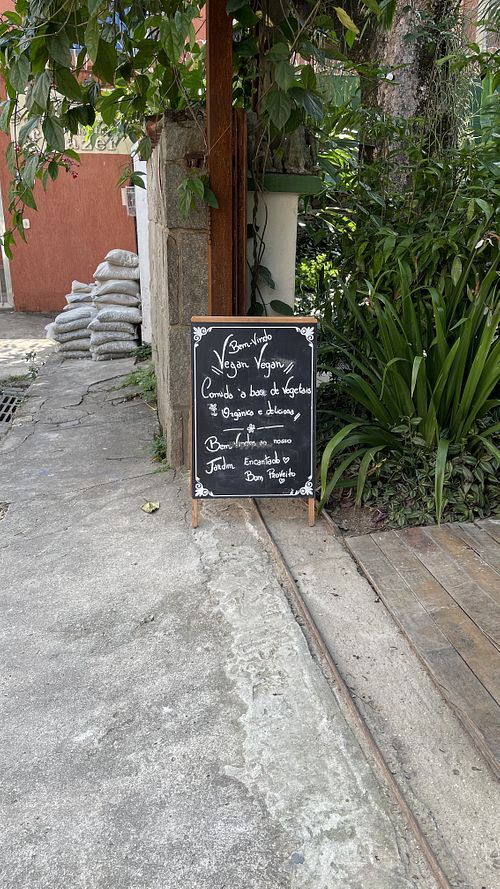 Bem-Vindo
Vegan Vegan
Comida à base de Vegetais
Orgânica e deliciosa
Bem Vindos ao nosso
Jardim Encantado
Bom Proveito